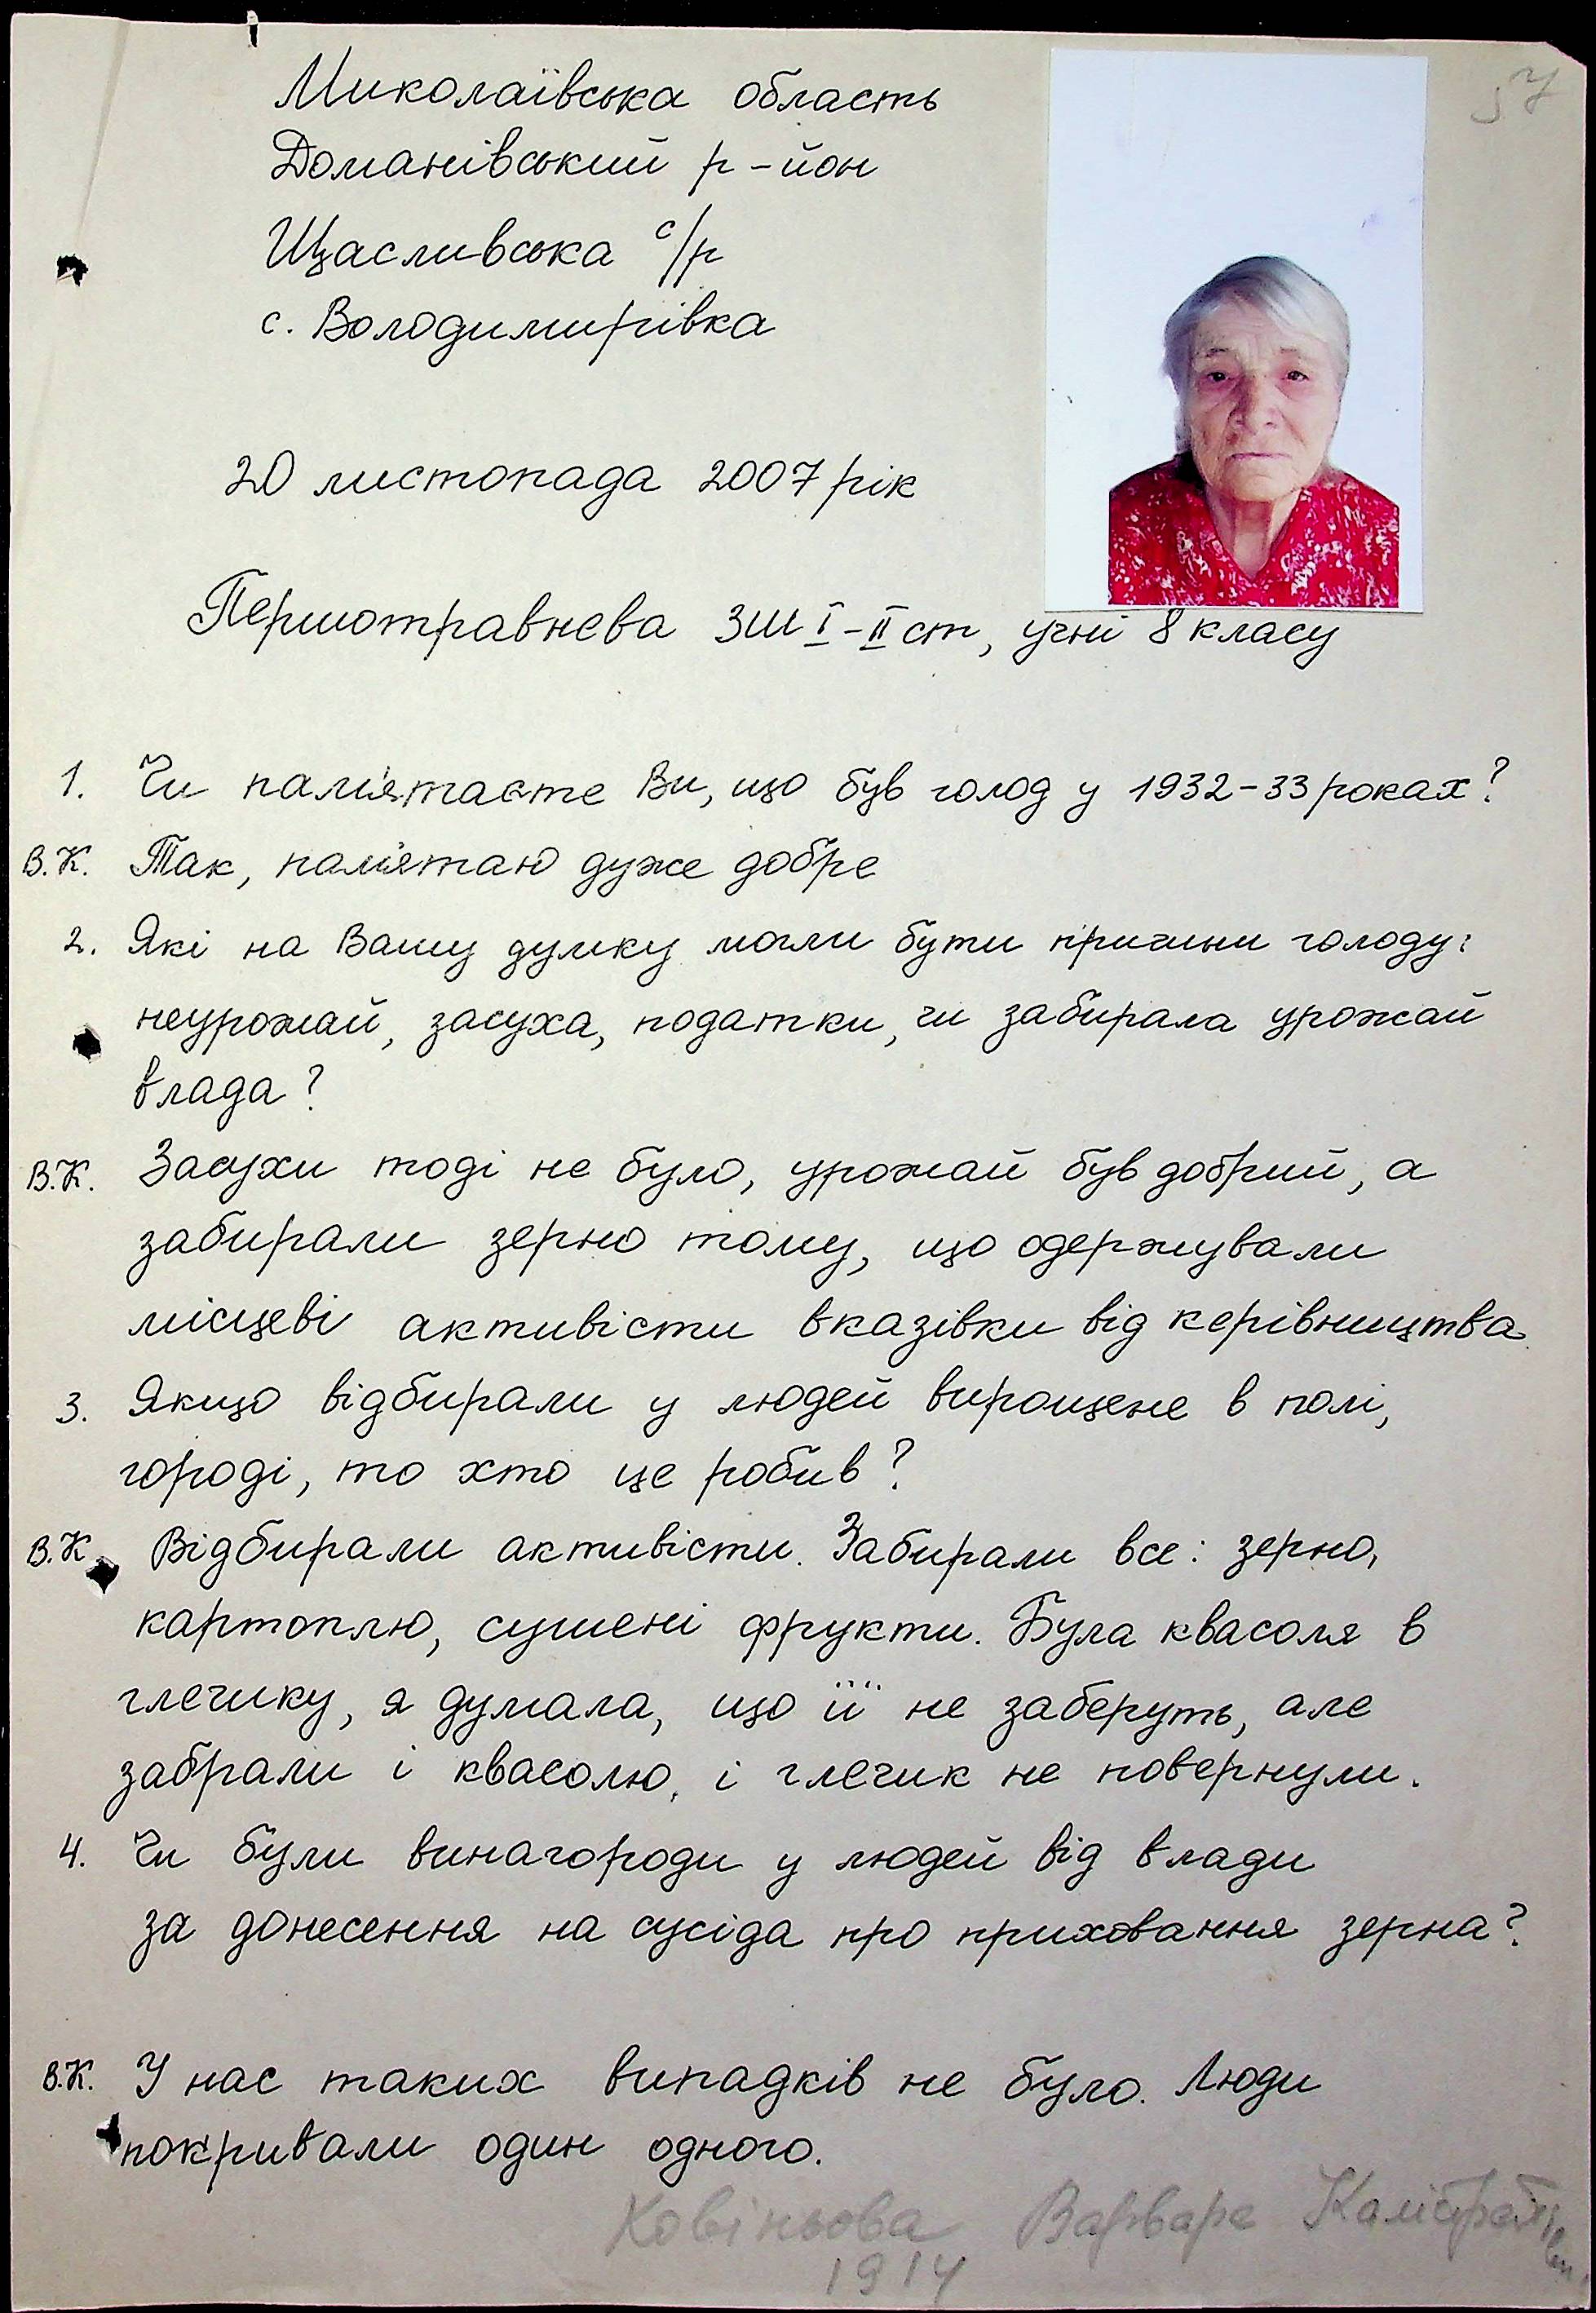 57
Миколаївська область
Доманівський р-йон
Щасливська с/р
с. Володимирівка
20 листопада 2007 рік
Першотравнева ЗШ І-ІІ ст, учні 8 класу
1. Чи пам'ятаєте Ви, що був голод у 1932-33 роках?
В.К. Так, пам'ятаю дуже добре
2. Які на Вашу думку могли бути причини голоду:
неурожай, засуха, податки, чи забирала урожай
влада?
В.К. Засухи тоді не було, урожай був добрий, а
забирали зерно тому, що одержували
місцеві активісти вказівки від керівництва.
3. Якщо відбирали у людей вирощене в полі,
городі, то хто це робив?
В.К. Відбирали активісти. Забирали все: зерно,
картоплю, сушені фрукти. Була квасоля в
глечику, я думала, що її не заберуть, але
забрали і квасолю, і глечик не повернули.
4. Чи були винагороди у людей від влади
за донесення на сусіда про приховання зерна?
В.К. У нас таких випадків не було. Люди
покривали один одного.
Ковіньова Варвара
1914